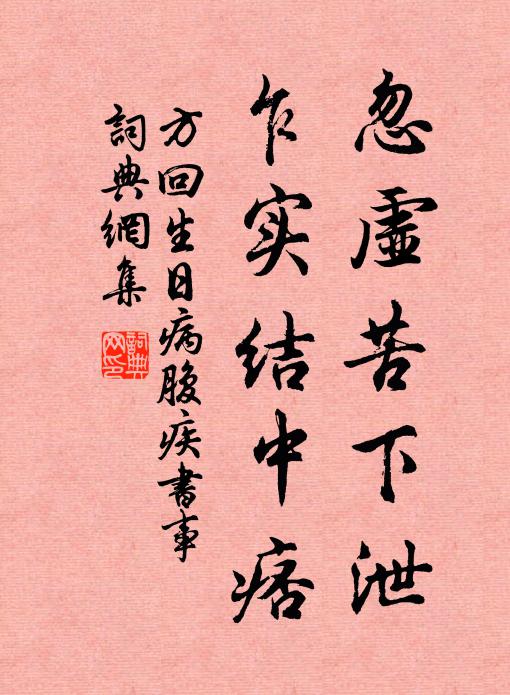 忽虛苦下泄
乍实结中痞
方回生日病腹疾書事
詞典網集
詞典网印